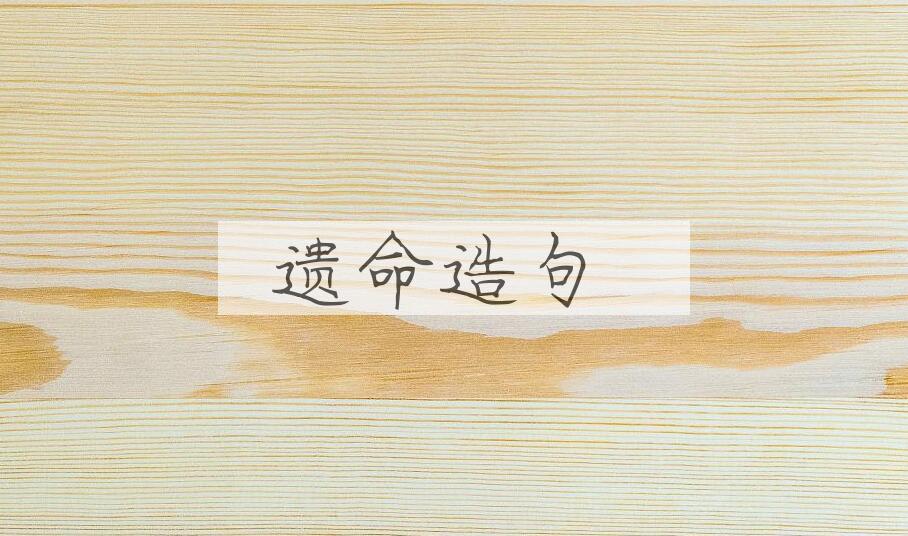 遗命造句